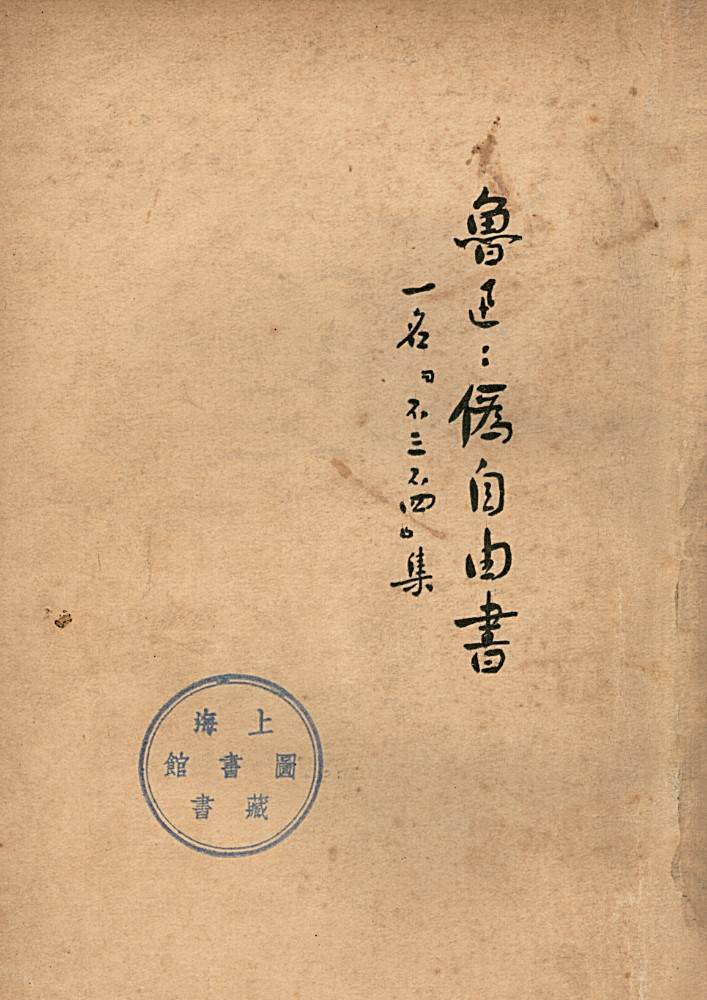 魯迅：偽自由書
一名「不三不四」集
上海
圖書館
藏書